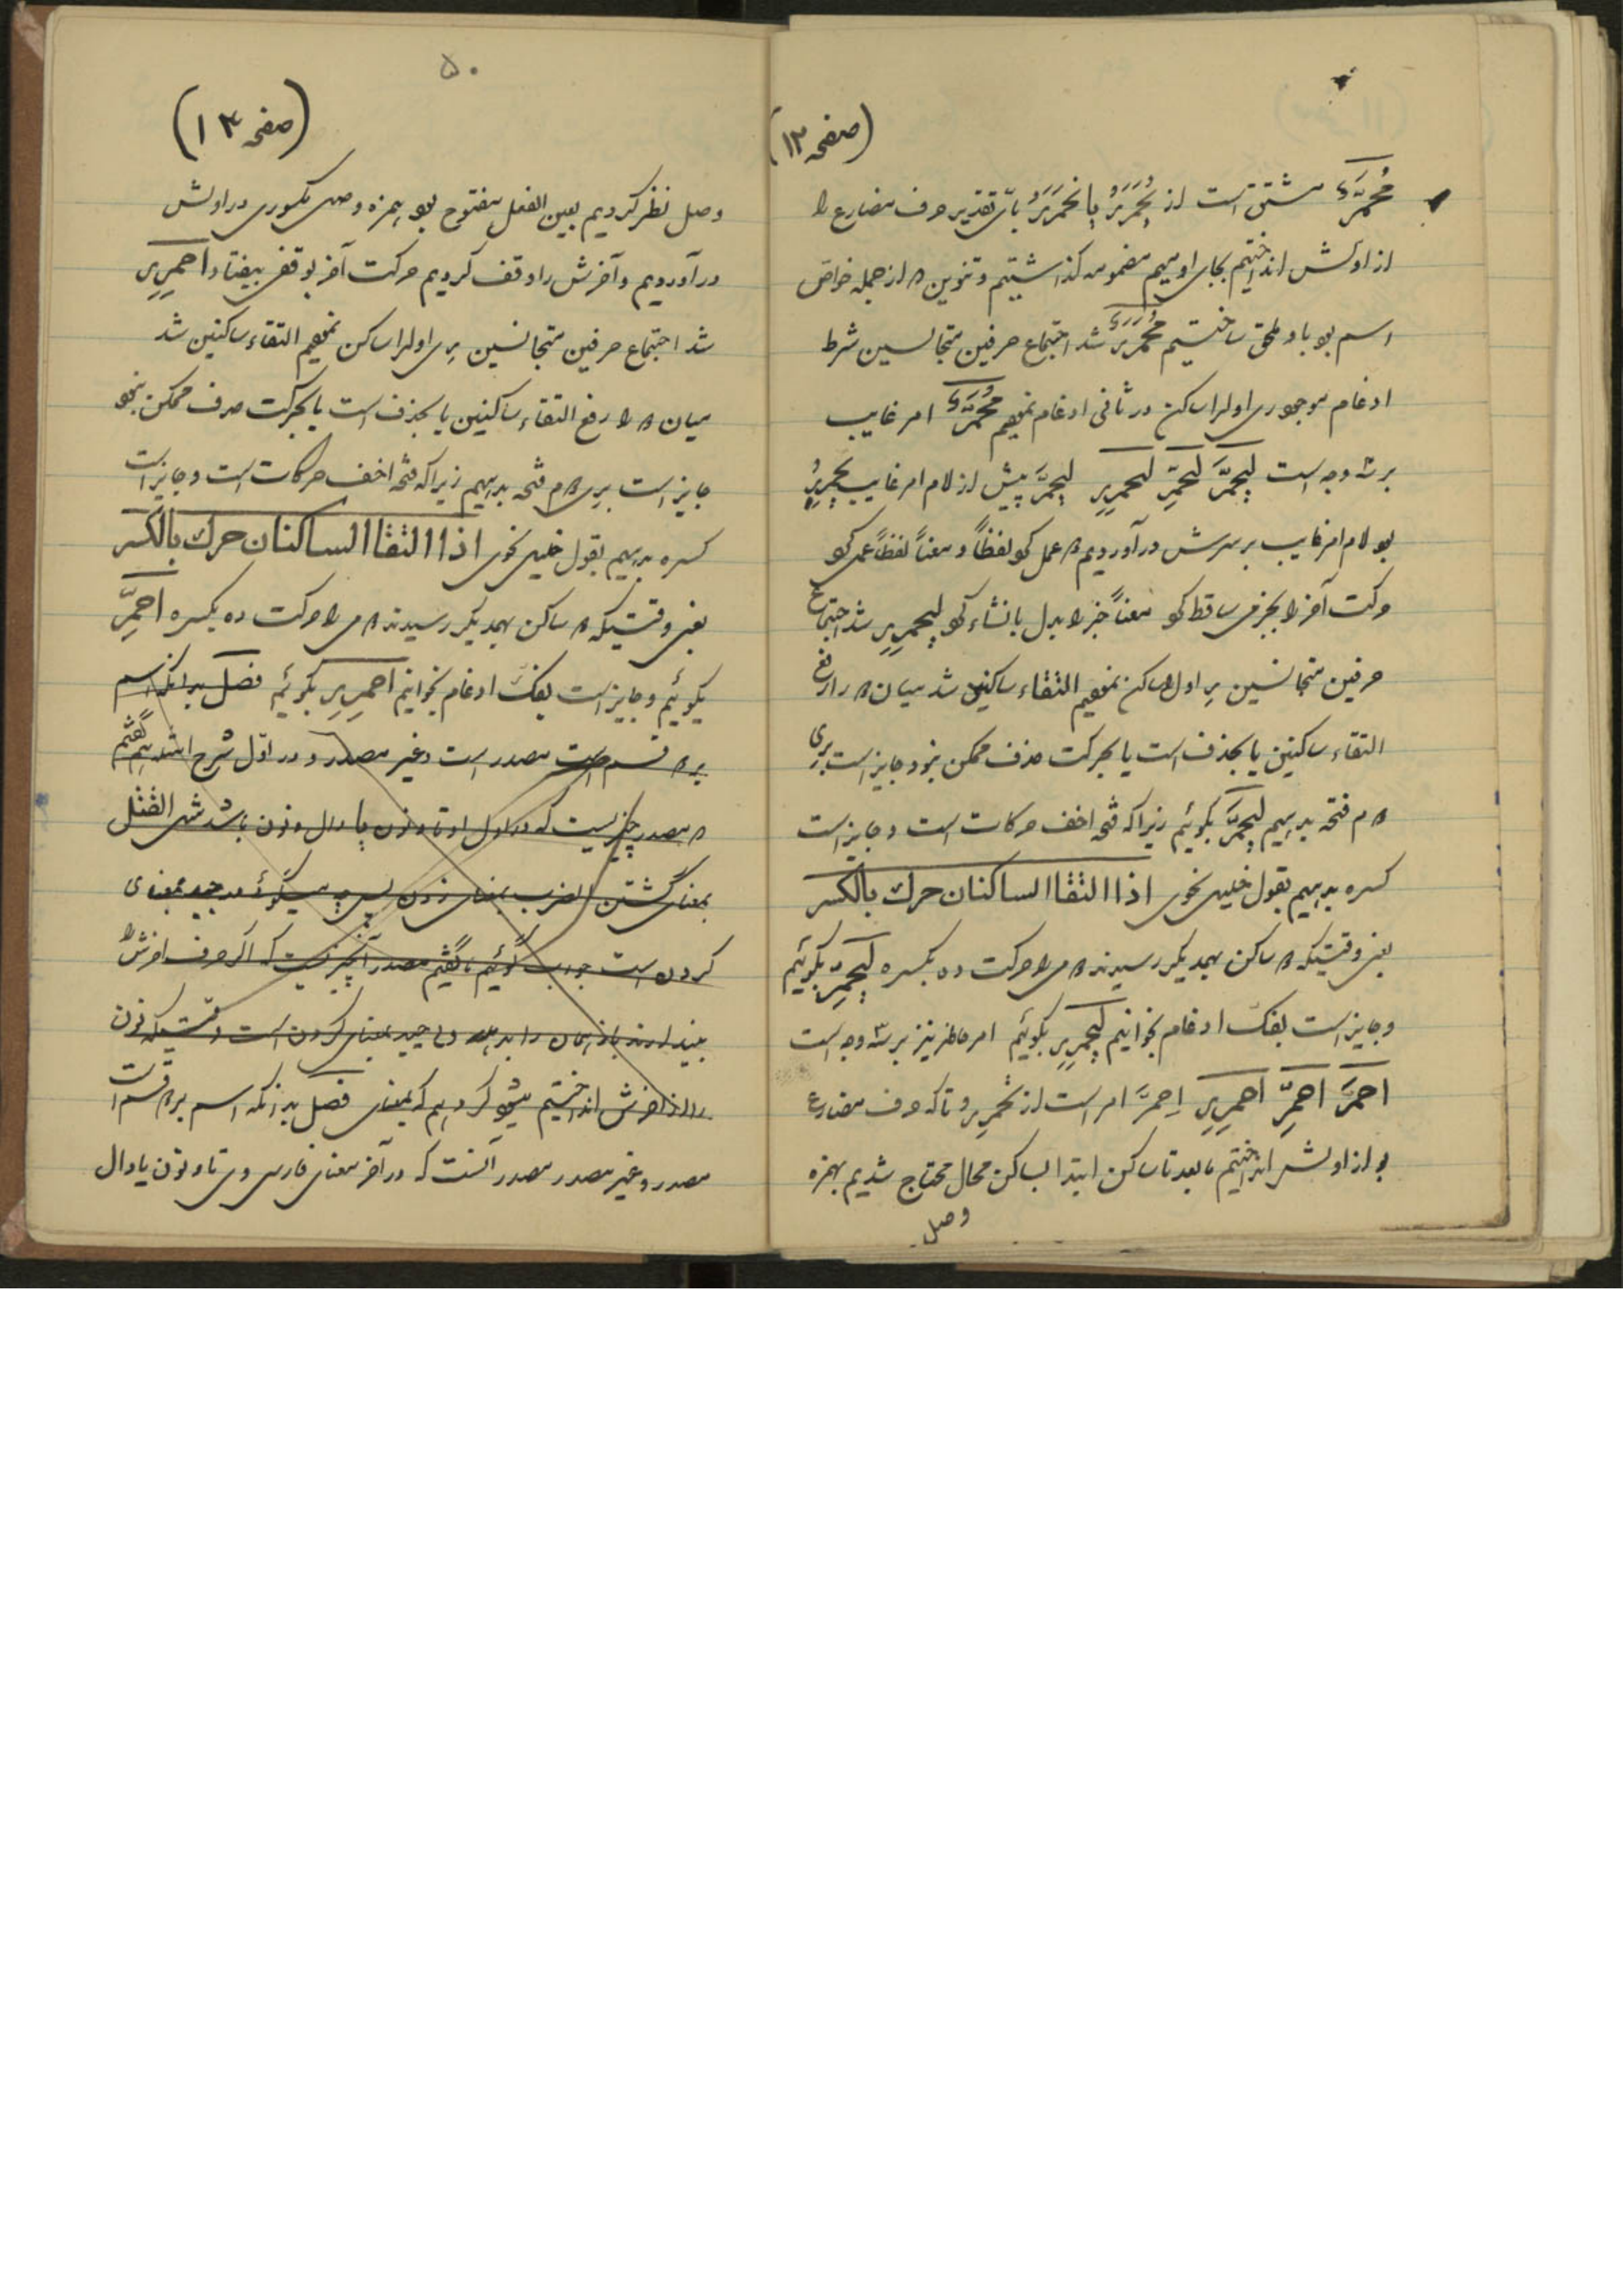 (صفحه ۱۲)
مُحْمَرٌّ مشتق است از یُحْمَرَرُ یا تُحْمَرَرُ بای تقدیر حرف مضارع را
از اولش انداختیم بجای او میم مضمومه گذاشتیم و تنوین که از جمله خواص
اسم بود باو ملحق ساختیم مُحْمَرَرٌ شد اجتماع حرفین متجانسین شرط
ادغام موجود اولرا ساکن در ثانی ادغام نمودیم مُحْمَرٌّ امر غایب
بر سه وجه است لِیَحْمَرَّ لِیَحْمَرِّ لِیَحْمَرِر لِیَحْمَرَّ پیش از لام امر غایب یَحْمَرِرُ
بود لام امر غایب بر سرش درآوردیم عمل کرد لفظاً و معناً لفظاً عمل کرد
حرکت آخر را بجزمی ساقط کرد معناً خبر را بدل بانشاء کرد لِیَحْمَرِر شد اجتماع
حرفین متجانسین اول ساکن نمودیم التقاء ساکنین شد میان را رفع
التقاء ساکنین یا بحذف است یا بحرکت حذف ممکن نبود جایز است برای
فتحه بدهیم لِیَحْمَرَّ بگوئیم زیرا که فتحه اخف حرکات است و جایز است
کسره بدهیم بقول خلیل نحوی اذا التقا الساکنان حرك بالکسر
یعنی وقتیکه ساکن بهمدیگر رسیدند را حرکت ده بکسره لِیَحْمَرِّ بگوئیم
و جایز است بفکّ ادغام بخوانیم لِیَحْمَرِر بگوئیم امر حاضر نیز بر سه وجه است
اِحْمَرَّ اِحْمَرِّ اِحْمَرِر اِحْمَرَّ امر است از تَحْمَرِر و تا که حرف مضارع
بود از اولش انداختیم مابعد تا ساکن ابتدا بساکن محال محتاج شدیم بهمزه
وصل
۵۰
(صفحه ۱۳)
وصل نظر کردیم بعین الفعل مفتوح بود همزه وصل مکسوری در اولش
درآوردیم و آخرش را وقف کردیم حرکت آخر بوقفی بیفتاد اِحْمَرِر
شد اجتماع حرفین متجانسین اولرا ساکن نمودیم التقاء ساکنین شد
میان را رفع التقاء ساکنین یا بحذف است یا بحرکت حذف ممکن نبود
جایز است برای فتحه بدهیم زیرا که فتحه اخف حرکات است و جایز است
کسره بدهیم بقول خلیل نحوی اذا التقا الساکنان حرك بالکسر
یعنی وقتیکه ساکن بهمدیگر رسیدند را حرکت ده بکسره اِحْمَرِّ
بگوئیم و جایز است بفکّ ادغام بخوانیم اِحْمَرِر بگوئیم فصل بدانکه اسم
بر قسم است مصدر است و غیر مصدر و در اوّل شرح گفتیم
مصدر چیزیست که در اول او تا و نون یا دال و نون باشد مثل القتل
بمعنای گشتن الضرب بمعنای زدن پس چه میگوئی در جید بمعنای
کردن است جواب گوئیم ما گفتیم مصدر آن چیزیست که اگر حرف آخرش را
بیندازند باز همان را بدهد و جید بمعنای گردن است وقتیکه نون
را از آخرش انداختیم کردیم که بمعنای فصل بدانکه اسم بر قسم است
مصدر و غیر مصدر مصدر آنست که در آخر معنای فارسی وی تا و نون یا دال